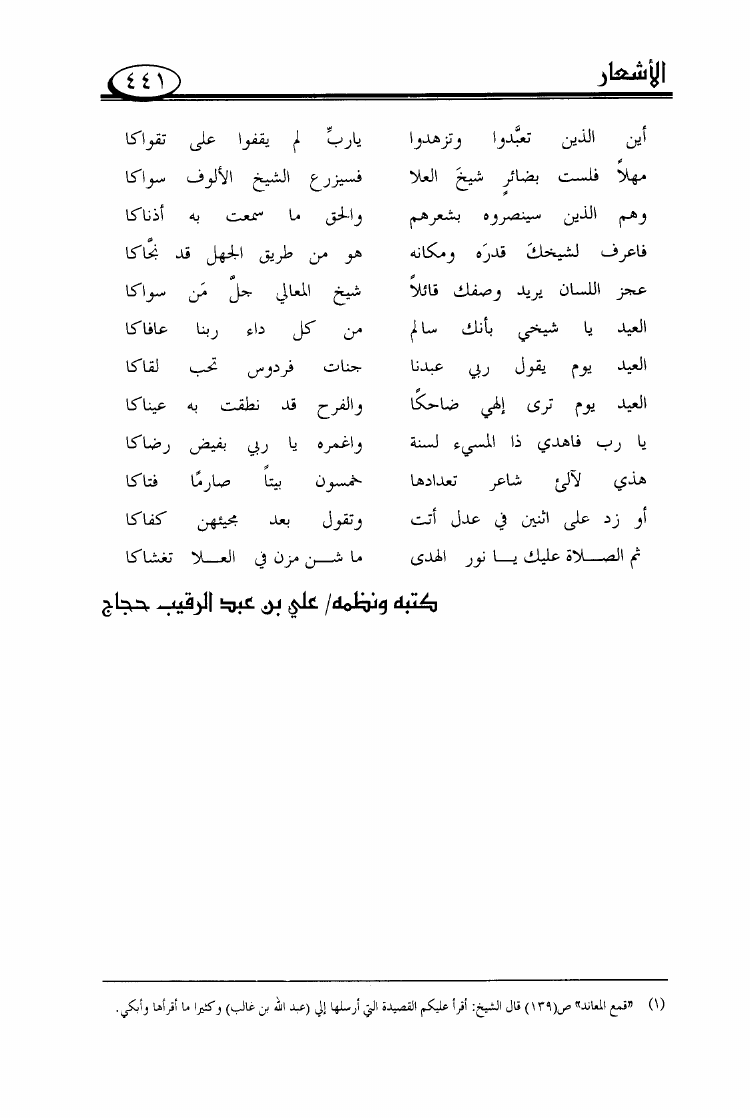 الأشعار ٤٤١
أين الذين تعبَّدوا وتزهدوا ياربِّ لم يقفوا على تقواكا
مهلاً فلست بضائرٍ شيخَ العلا فسيزرع الشيخ الألوف سواكا
وهم الذين سينصروه بشعرهم والحق ما سمعت به أذناكا
فاعرف لشيخكَ قدرَه ومكانه هو من طريق الجهل قد نجَّاكا
عجز اللسان يريد وصفك قائلاً شيخ المعالي جلَّ مَن سواكا
العيد يا شيخي بأنك سالم من كل داء ربنا عافاكا
العيد يوم يقول ربي عبدنا جنات فردوس تحب لقاكا
العيد يوم ترى إلهي ضاحكًا والفرح قد نطقت به عيناكا
يا رب فاهدي ذا المسيء لسنة واغمره يا ربي بفيض رضاكا
هذي لآلئ شاعر تعدادها خمسون بيتاً صارمًا فتاكا
أو زد على اثنين في عدل أتت وتقول بعد مجيئهن كفاكا
ثم الصـــلاة عليك يـــا نور الهدى ما شـــن مزن في العـــلا تغشاكا
كتبه ونظمه/ علي بن عبد الرقيب حجاج
(١) "قمع المعاند" ص(١٣٩) قال الشيخ: أقرأ عليكم القصيدة التي أرسلها إلي (عبد الله بن غالب) وكثيرا ما أقرأها وأبكي.